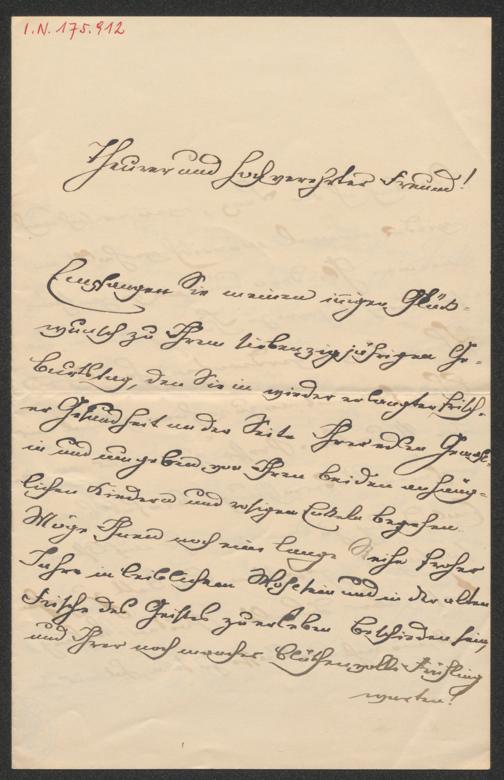 I.N. 175.912
Theurer und hochverehrter Freund!
Empfangen Sie meinen iñigen Glück-
wunsch zu Ihrem siebenzigjährigen Ge-
burtstag, den Sie in wieder erlangter frisch-
er Gesundheit an der Seite Ihrer edlen Gemahl-
in und umgeben von Ihren beiden anhäng-
lichen Kindern und rosigen Enkeln begehen.
Möge Ihnen noch eine lange Reihe froher
Jahre in leiblichem Wohlsein und in der alten
Frische des Geistes zu erleben beschieden sein,
und Ihrer noch mancher blüthenvolle Frühling
warten!